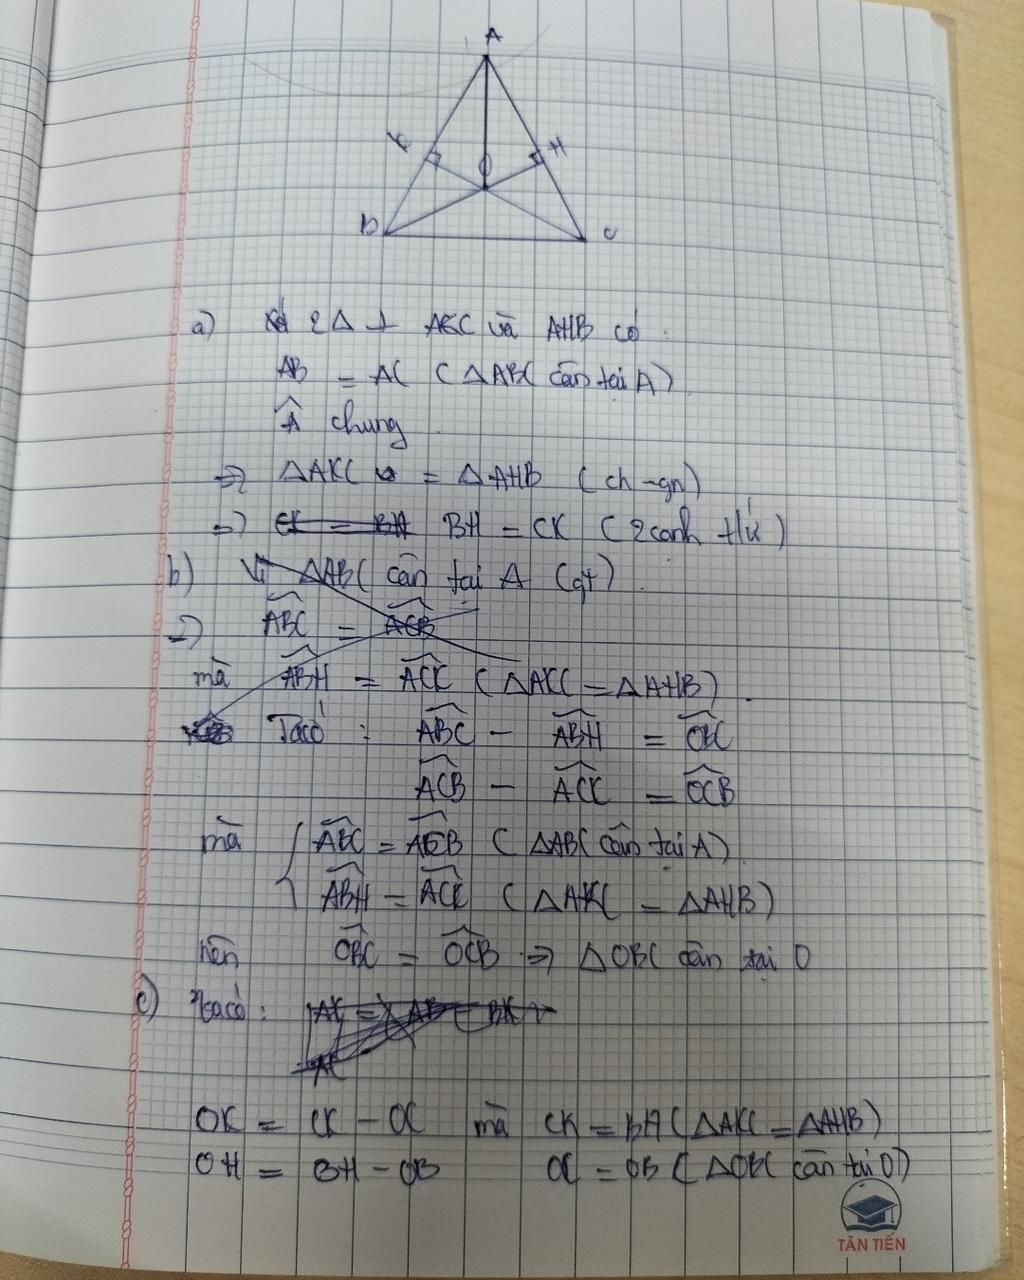 A
K
H
O
B
C
a) Xét 2 Δ ⊥ AKC và AHB có :
AB = AC ( ΔABC cân tại A )
Â chung .
=> ΔAKC = ΔAHB ( ch - gn )
=> CK = BH BH = CK ( 2 cạnh t/ứ )
b) Vì ΔABC cân tại A (gt) .
=> ABC = ACB
mà ABH = ACK ( ΔAKC = ΔAHB ) .
Ta có : ABC - ABH = OBC
ACB - ACK = OCB
mà { ABC = ACB ( ΔABC cân tại A )
ABH = ACK ( ΔAKC = ΔAHB )
nên OBC = OCB => ΔOBC cân tại O
c) Ta có : AK = AB - BK
AC
OK = CK - OC mà CK = BH ( ΔAKC = ΔAHB )
OH = BH - OB OC = OB ( ΔOBC cân tại O )
TÂN TIẾN